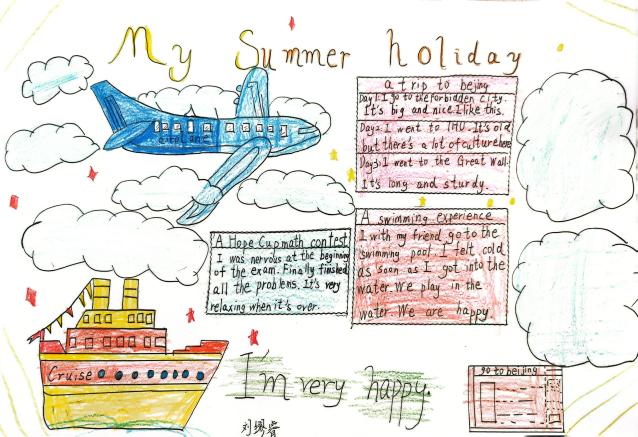 My Summer holiday
airplane
a trip to bejing
Day1:I go to the forbidden city.
It's big and nice.I like this.
Day2 I went to THU. It's old
but there's a lot of culture here
Day3:I went to the Great Wall.
It's long and sturdy.
A Hope Cup math contest
I was nervous at the beginning
of the exam. Finally finished
all the problems. It's very
relaxing when it's over.
A swimming experience
I with my friend go to the
swimming pool. I felt cold
as soon as I got into the
water.We play in the
water.We are happy.
Cruise
I'm very happy.
go to beijing